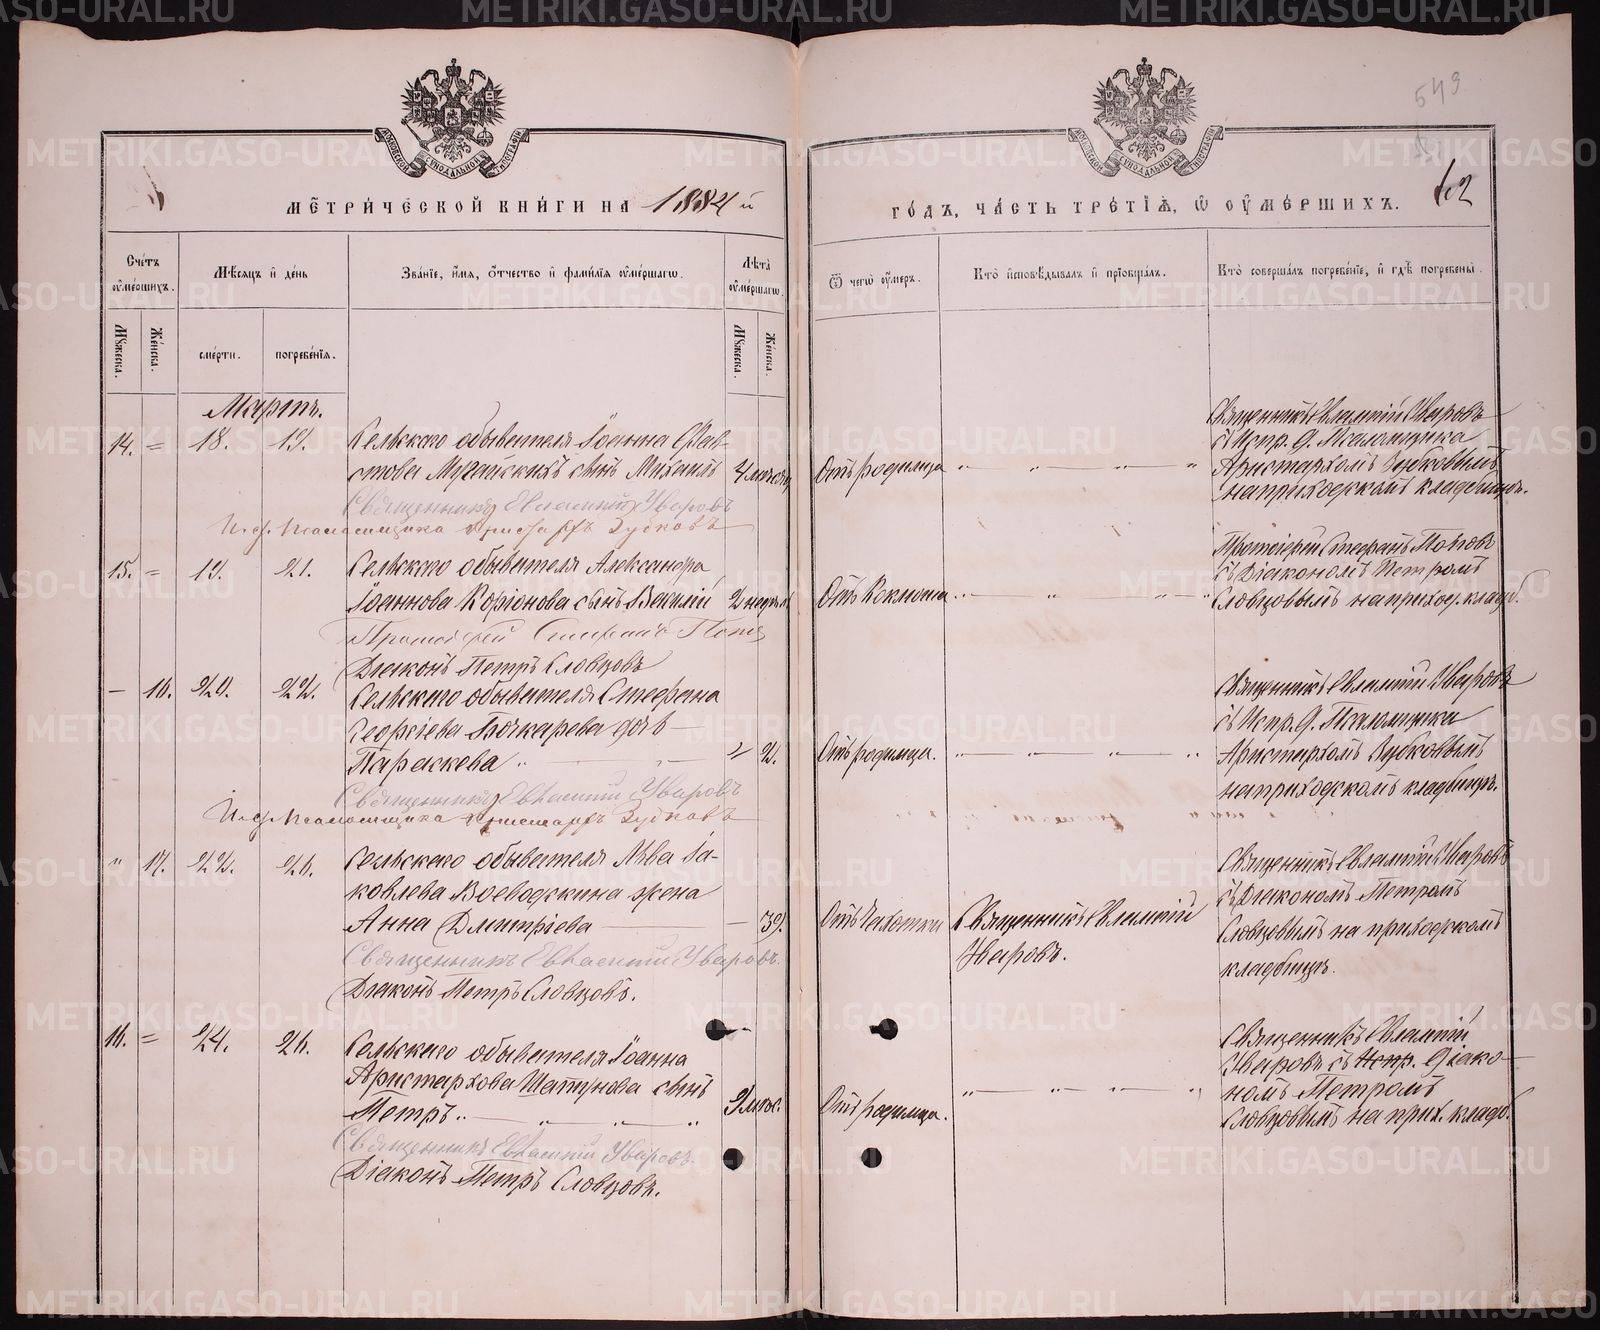 METRIKI.GASO-URAL.RU
543
МЕТРИЧЕСКОЙ КНИГИ НА 1884 й
ГОДЪ, ЧАСТЬ ТРЕТІЯ, Ѡ ОУМЕРШИХЪ.
Счетъ оумершихъ.
Мѣсяцъ и день
Званіе, имя, отчество и фамилія оумершагѡ.
Лѣта оумершагѡ.
Ѿ чегѡ оумеръ.
Кто исповѣдывалъ и пріобщалъ.
Кто совершалъ погребеніе, и гдѣ погребены.
Мужеска.
Женска.
смерти.
погребенія.
Мужеска.
Женска.
Мартъ.
14. = 18. 19. Сельскаго обывателя Іоанна Фав-
стова Мугайскихъ сынъ Михаилъ 4 мѣсяц
Отъ родимца
Священникъ Евлампій Уваровъ
съ Испр. д. Псаломщика
Аристархомъ Зубковымъ
на приходскомъ кладбищѣ.
Священникъ Евлампій Уваровъ
И.д. Псаломщика Аристархъ Зубковъ
15. = 19. 21. Сельскаго обывателя Александра
Іоаннова Коріонова сынъ Василій 2 недѣли
Отъ Коклюша
Протоіерей Стефанъ Поповъ
съ Діакономъ Петромъ
Словцовымъ на приход. кладб.
Протоіерей Стефанъ Попов
Діаконъ Петръ Словцовъ
– 16. 20. 22. Сельскаго обывателя Стефана
Георгіева Бочкарева дочь
Параскева 2.
Отъ родимца.
Священникъ Евлампій Уваровъ
съ Испр. д. Псаломщика
Аристархомъ Зубковымъ
на приходскомъ кладбищѣ.
Священникъ Евлампій Уваровъ
И.д. Псаломщика Аристархъ Зубковъ
" 17. 22. 26. Сельскаго обывателя Льва Іа-
ковлева Воеводскина жена
Анна Дмитріева – 39.
Отъ Чахотки
Священникъ Евлампій
Уваровъ.
Священникъ Евлампій Уваровъ
съ Діакономъ Петромъ
Словцовымъ на приходскомъ
кладбищѣ.
Священникъ Евлампій Уваровъ.
Діаконъ Петръ Словцовъ.
16. = 24. 26. Сельскаго обывателя Іоанна
Аристархова Шатунова сынъ
Петръ. 9 мѣс.
Отъ родимца.
Священникъ Евлампій
Уваровъ съ Испр. Діако-
номъ Петромъ
Словцовымъ на прих. кладб.
Священникъ Евлампій Уваровъ.
Діаконъ Петръ Словцовъ.